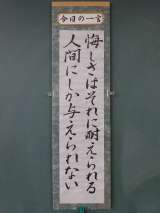 今日の一言
悔しさはそれに耐えられる
人間にしか与えられない